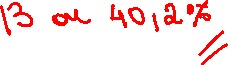 13 ou 40,2%